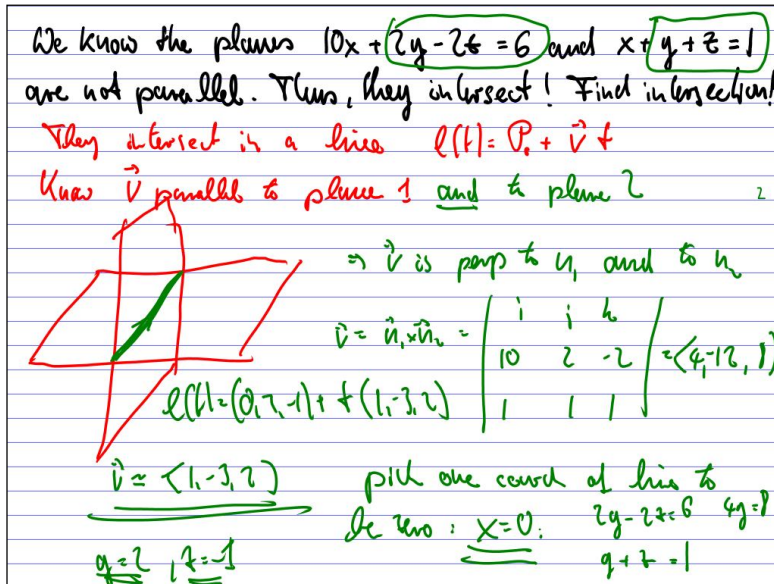 We know the planes 10x + 2y - 2z = 6 and x + y + z = 1
are not parallel. Thus, they intersect! Find intersection!
They intersect in a line ℓ(t) = P₀ + v⃗ t
Know v⃗ parallel to plane 1 and to plane 2
2
⇒ v⃗ is perp to n₁ and to n₂
v⃗ = n⃗₁ × n⃗₂ = | i j k |
| 10 2 -2 | = <4, -12, 8>
| 1 1 1 |
ℓ(t) = (0, 2, -1) + t (1, -3, 2)
v⃗ ≃ <1, -3, 2>
pick one coord of line to
be zero: x=0: 2y - 2z = 6 4y = 8
y + z = 1
y = 2, z = -1